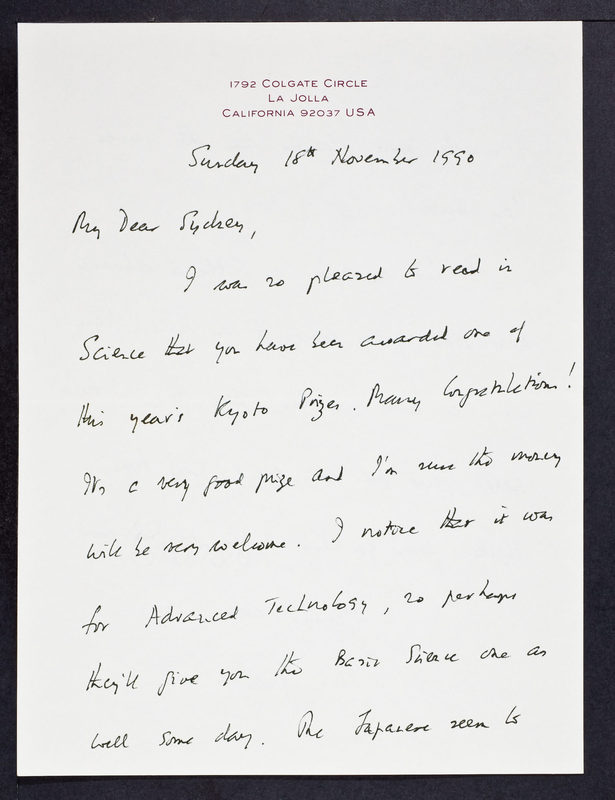 1792 COLGATE CIRCLE
LA JOLLA
CALIFORNIA 92037 USA
Sunday 18th November 1990
My Dear Sydney,
I was so pleased to read in
Science that you have been awarded one of
this year's Kyoto Prizes. Many Congratulations!
It's a very good prize and I'm sure the money
will be very welcome. I notice that it was
for Advanced Technology, so perhaps
they'll give you the Basic Science one as
well some day. The Japanese seem to